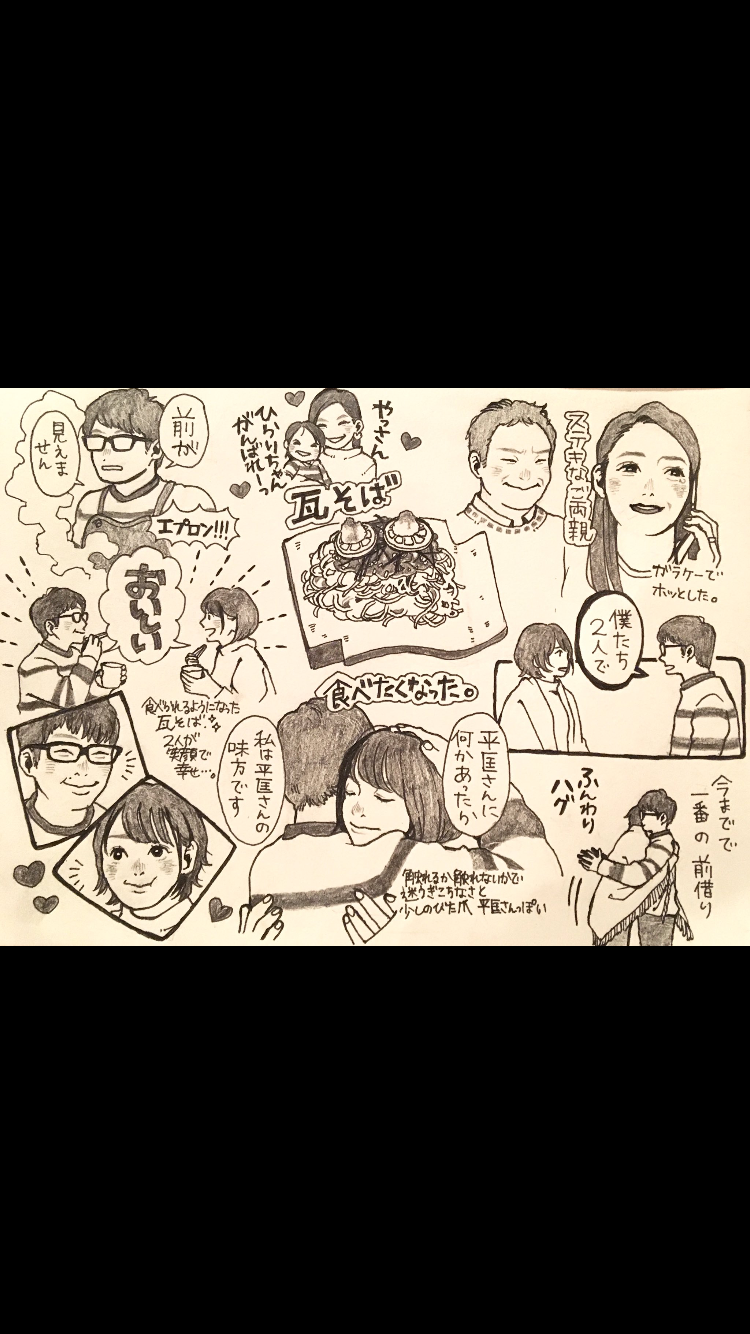 前が
見えま
せん
エプロン!!!
やっさん
ひらりちゃん
がんばれーっ
瓦そば
ステキなご両親
ガラケーで
ホッとした。
おいしい
僕たち
2人で
食べたくなった。
食べられるようになった
瓦そば
2人が
笑顔で
幸せ…。
平匡さんに
何かあったら
私は平匡さんの
味方です
触れるか触れないかで
迷うぎこちなさと
少しのびた爪 平匡さんぽい
ふんわり
ハグ
今までで
一番の前借り